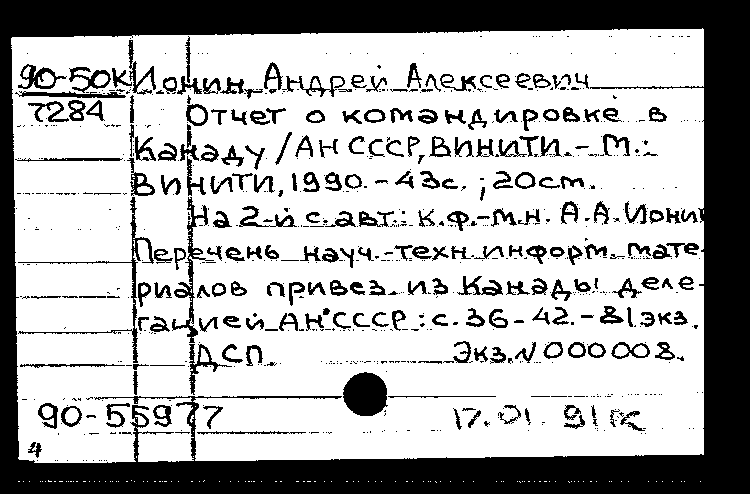 90-50к Ионин, Андрей Алексеевич
7284 Отчет о командировке в
Канаду / АН СССР, ВИНИТИ. - М.:
ВИНИТИ, 1990. - 43с. ; 20см.
На 2-й с. авт.: к.ф.-м.н. А.А. Ионин
Перечень науч.-техн. информ. мате-
риалов привез. из Канады деле-
гацией АН СССР : с. 36-42. - 81экз.
ДСП. Экз. N 000008.
90-55977 17.01.91
4